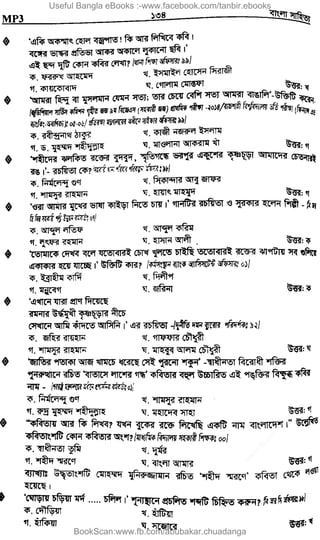 Useful Bangla eBooks :-www.facebook.com/tanbir.ebooks
MP3 ১৩৪ বাংলা সাহিত্য
'একি অকস্মাৎ হোল বজ্রপাত! কি আর লিখিবে কবি।
বঙ্গের ভাস্কর প্রতিভা আকর অকালে লুকালো ছবি।'
এই ছন্দ দুটি কোন কবির লেখা?
ক. ফররুখ আহমেদ খ. ইসমাইল হোসেন সিরাজী
গ. কায়কোবাদ ঘ. গোলাম মোস্তফা উত্তর: খ
'আমরা হিন্দু বা মুসলমান যেমন সত্য; তার চেয়ে বেশি সত্য আমরা বাঙালি'-উক্তিটি কার?
ক. রবীন্দ্রনাথ ঠাকুর খ. কাজী নজরুল ইসলাম
গ. ড. মুহম্মদ শহীদুল্লাহ ঘ. মাওলানা আকরাম খাঁ উত্তর: গ
'শহীদের ঝলকিত রক্তের বুদবুদ, স্মৃতিগন্ধে ভরপুর একুশের কৃষ্ণচূড়া আমাদের চেতনারই
রঙ।'- রচয়িতা কে?
ক. নির্মলেন্দু গুণ খ. সিকান্দার আবু জাফর
গ. শামসুর রাহমান ঘ. হায়াৎ মামুদ উত্তর: গ
'ওরা আমার মুখের ভাষা কাইড়া নিতে চায়।' গানটির রচয়িতা ও সুরকার হলেন শিল্পী -
ক. আব্দুল লতিফ খ. আব্দুল করিম
গ. লুৎফর রহমান ঘ. হাসান আলী উত্তর: ক
একাকার হয়ে যাচ্ছে।' উক্তিটি কার?
ক. ইব্রাহীম কার্দি খ. দিলীপ
গ. মন্নুবেগ ঘ. জরিনা উত্তর: ক
'এখানে যারা প্রাণ দিয়েছে
রমনার উর্ধ্বমুখী কৃষ্ণচূড়ার নীচে
সেখানে আমি কাঁদতে আসিনি।' এর রচয়িতা -
ক. জহির রায়হান খ. গাফফার চৌধুরী
গ. শামসুর রাহমান ঘ. মাহবুব আলম চৌধুরী উত্তর: ঘ
'জাতির পতাকা আজ খামচে ধরেছে সেই পুরনো শকুন' -স্বাধীনতা বিরোধী শক্তির
পুনরুত্থানে রচিত 'বাতাসে লাশের গন্ধ' কবিতার বহুল উচ্চারিত এই পঙক্তির বিক্ষুব্ধ কবির
নাম -
ক. নির্মলেন্দু গুণ খ. শামসুর রাহমান
গ. রুদ্র মুহম্মদ শহীদুল্লাহ ঘ. মহাদেব সাহা উত্তর: গ
"কবিতায় আর কি লিখব? যখন বুকের রক্তে লিখেছি একটি নাম বাংলাদেশ।"
কবিতাংশটি কোন কবিতার অংশ?
ক. স্বাধীনতা তুমি খ. দুর্মর
গ. শহীদ স্মরণে ঘ. বাংলা আমার উত্তর: গ
ব্যাখ্যাঃ উদ্ধৃতাংশটি মোহাম্মদ মনিরুজ্জামান রচিত 'শহীদ স্মরণে' কবিতা থেকে
হয়েছে।
ক. দৌড়িয়া খ. হাঁটিয়া
গ. হাঁকিয়া ঘ. সজোরে উত্তর: খ
BookScan:www.fb.com/abubakar.chuadanga